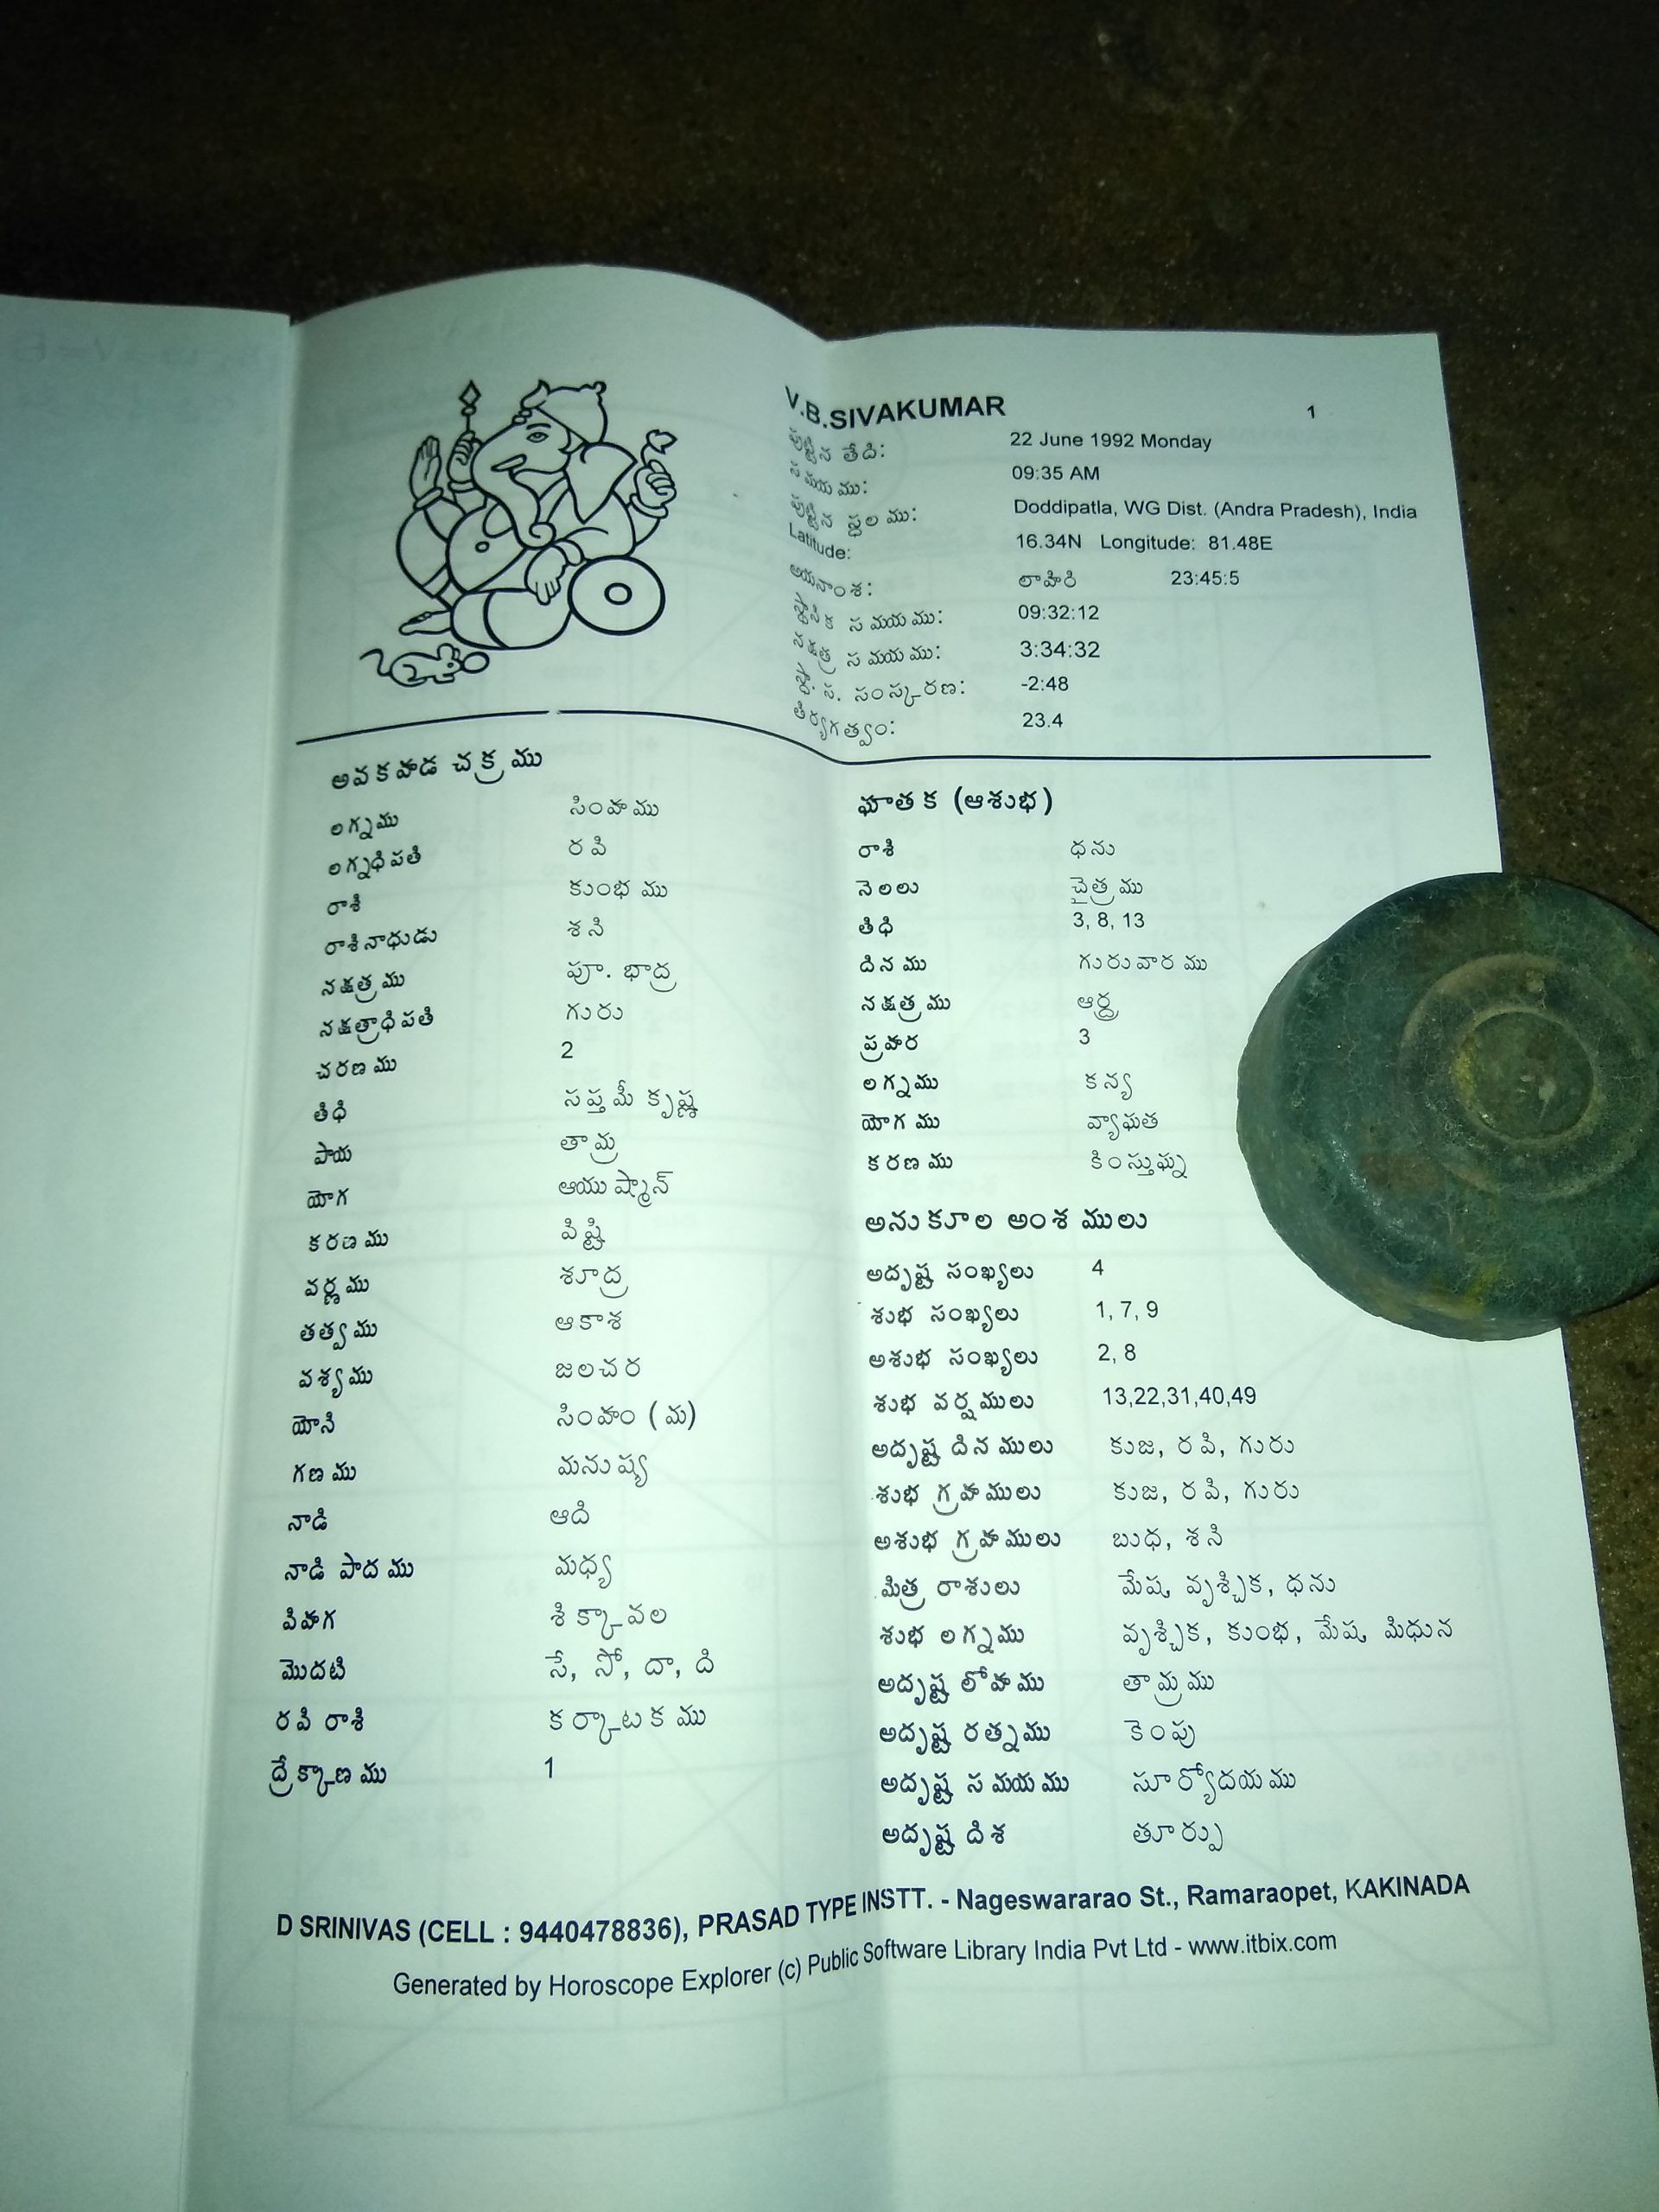 V.B.SIVAKUMAR 1
పుట్టిన తేది: 22 June 1992 Monday
సమయము: 09:35 AM
పుట్టిన స్థలము: Doddipatla, WG Dist. (Andra Pradesh), India
Latitude: 16.34N Longitude: 81.48E
అయనాంశ: లాహిరి 23:45:5
స్థానిక సమయము: 09:32:12
నక్షత్ర సమయము: 3:34:32
స్థా. స. సంస్కరణ: -2:48
తిర్యగత్వం: 23.4
అవకహడ చక్రము
లగ్నము సింహము
లగ్నధిపతి రవి
రాశి కుంభము
రాశినాధుడు శని
నక్షత్రము పూ. భాద్ర
నక్షత్రాధిపతి గురు
చరణము 2
తిధి సప్తమీ కృష్ణ
పాయ తామ్ర
యోగ ఆయుష్మాన్
కరణము విష్టి
వర్ణము శూద్ర
తత్వము ఆకాశ
వశ్యము జలచర
యోని సింహం (మ)
గణము మనుష్య
నాడి ఆది
నాడి పాదము మధ్య
విహగ శిక్కావల
మొదటి సే, సో, దా, ది
రవి రాశి కర్కాటకము
ద్రేక్కాణము 1
ఘాతక (ఆశుభ)
రాశి ధను
నెలలు చైత్రము
తిధి 3, 8, 13
దినము గురువారము
నక్షత్రము ఆర్ద్ర
ప్రహర 3
లగ్నము కన్య
యోగము వ్యాఘత
కరణము కింస్తుఘ్న
అనుకూల అంశములు
అదృష్ట సంఖ్యలు 4
శుభ సంఖ్యలు 1, 7, 9
అశుభ సంఖ్యలు 2, 8
శుభ వర్షములు 13,22,31,40,49
అదృష్ట దినములు కుజ, రవి, గురు
శుభ గ్రహములు కుజ, రవి, గురు
అశుభ గ్రహములు బుధ, శని
మిత్ర రాశులు మేష, వృశ్చిక, ధను
శుభ లగ్నము వృశ్చిక, కుంభ, మేష, మిధున
అదృష్ట లోహము తామ్రము
అదృష్ట రత్నము కెంపు
అదృష్ట సమయము సూర్యోదయము
అదృష్ట దిశ తూర్పు
D SRINIVAS (CELL : 9440478836), PRASAD TYPE INSTT. - Nageswararao St., Ramaraopet, KAKINADA
Generated by Horoscope Explorer (c) Public Software Library India Pvt Ltd - www.itbix.com